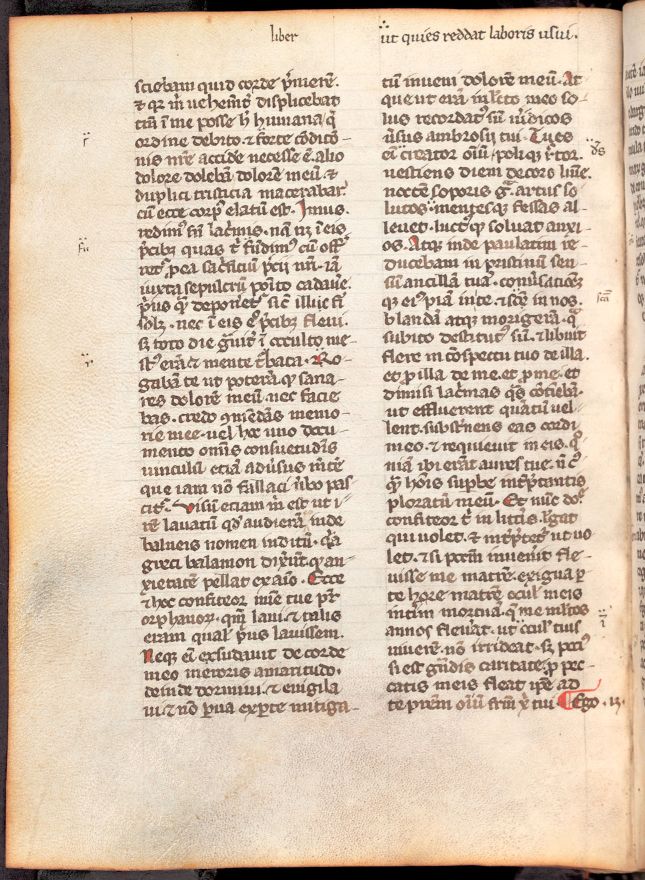 liber
ut quies reddat laboris usui.
sciebam quid corde p̄mere͂.
⁊ qr m̄ uehem̄t᷑ displicebat
tm̄ ī me posse h̄ humana q̄
ordine debito ⁊ sorte cōditō-
nis nr̄e accide᷑ necesse ē. alio
dolore doleba͂ dolorē meū. ⁊
duplici tristicia macerabar.
cū ecce corp᷒ elatū est. Imus.
redimus sn̄ lac̄mis. nā n̄ ī eis
p̄cibꝫ quas t͛ fūdim᷒ cū off͛-
p̄ ea sac̄ficiū p̄cii nr̄i. iā
iuxta sepulcrū pōito cadaue͛.
p̄us qͣ deponet᷑ sic̄ illuc fi
solꝫ. nec ī eis ḡ p̄cibꝫ fleui.
sꝫ toto die ḡuit͛ ī occulto me-
st᷒ erā. ⁊ mente t᷑bata. Ro-
gabam te ut poterā. qͦ sana-
res dolorē meū. nec facie
bas. credo 9mēdās memo-
rie mee. uel hoc uno docu-
mento omīs consuetudīs
uinculū etiā adūsus mētē
que iam nō fallaci ūbo pas
cit᷑. Uisū etiam m̄ est ut i-
rē lauatū qd̓ audierā inde
balneis nomen inditū. qͣ
greci balamon dix͛int qͦ an-
xietatē pellat ex aīo. Ecce
⁊ hoc confiteor mīe tue pr̄
orphanoꝝ. qm̄ laui. ⁊ talis
eram qual᷑ p̄us lauissem.
Neqꝫ eī exsudauit de corde
meo meroris amaritudo.
deinde dormiui. ⁊ euigila
ui. ⁊ nō ꝑua ex ꝑte mitiga-
tū inueni dolorē meū. At
que ut erā in lc̄to meo so-
lus recordat᷒ sū ūidicos
ūsus ambrosij tui. Tu es
eī creator oīum. poliqꝫ rc̄tor.
uestiens diem decoro lūīe.
noctē soporis gr̄a. artus so-
lutos mentesqꝫ fessas al-
leuet. luctqꝫ soluat anxi-
os. Atqꝫ inde paulatim re-
ducebam in pristinū sen-
sū ancillam tuā. conūsationēqꝫ
ei᷒ piam in te. ⁊ sc̄e in nos.
blandā atqꝫ morigerā. qͣ
subito destitut᷒ sū. ⁊ libuit
flere in cōspectu tuo de illa.
et ꝓ illa. de me. et ꝓ me. et
dimisi lac̄mas qͣs cōtinebā.
ut effluerent quātū uel-
lent. substernens eas cordi
meo. ⁊ requieuit in eis. qͦ
niā ibi erāt aures tue. nō c̓
qͣ hōīs supbe int͛p̄tantis
ploratū meū. Et nūc dn̄e
confiteor t̓ in litt͛is. legat
qui uolet. ⁊ int͛p̄tet᷑ ut uo
let. ⁊ si peccm̄ inuenit fle-
uisse me matrē. exigua ꝑ-
te hore matrē ocul̓ meis
int͛im mortuā. q̄ me ml̓tos
annos fleuerat. ut ocul̓ tuis
uiuerē. nō irrideat. sꝫ poti᷒
si est gn̄dis caritate. ꝓ pec-
catis meis fleat ip̄e ad
te prēm oīum frm̄ xp̄i tui. Ego ·